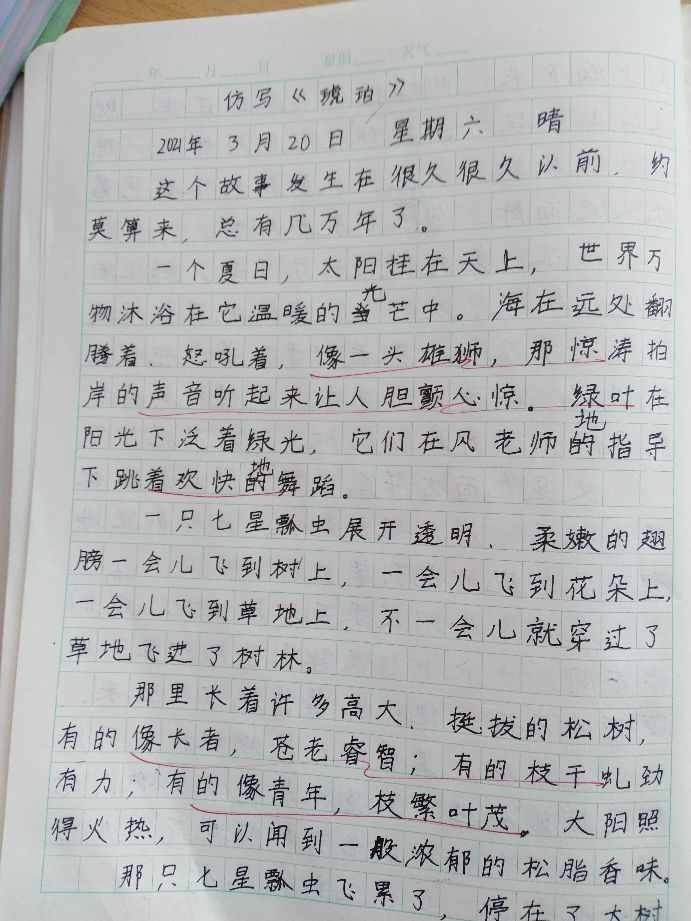 年 月 日 星期 天气
仿写《琥珀》
2021年 3月20日 星期六 晴
这个故事发生在很久很久以前，约
莫算来，总有几万年了。
一个夏日，太阳挂在天上，世界万
物沐浴在它温暖的光芒中。海在远处翻
腾着、怒吼着，像一头雄狮，那惊涛拍
岸的声音听起来让人胆颤心惊。绿叶在
阳光下泛着绿光，它们在风老师的地指导
下跳着欢快的地舞蹈。
一只七星瓢虫展开透明、柔嫩的翅
膀一会儿飞到树上，一会儿飞到花朵上，
一会儿飞到草地上，不一会儿就穿过了
草地飞进了树林。
那里长着许多高大、挺拔的松树，
有的像长者，苍老睿智；有的枝干虬劲
有力，有的像青年，枝繁叶茂。太阳照
得火热，可以闻到一般浓郁的松脂香味。
那只七星瓢虫飞累了，停在了大树